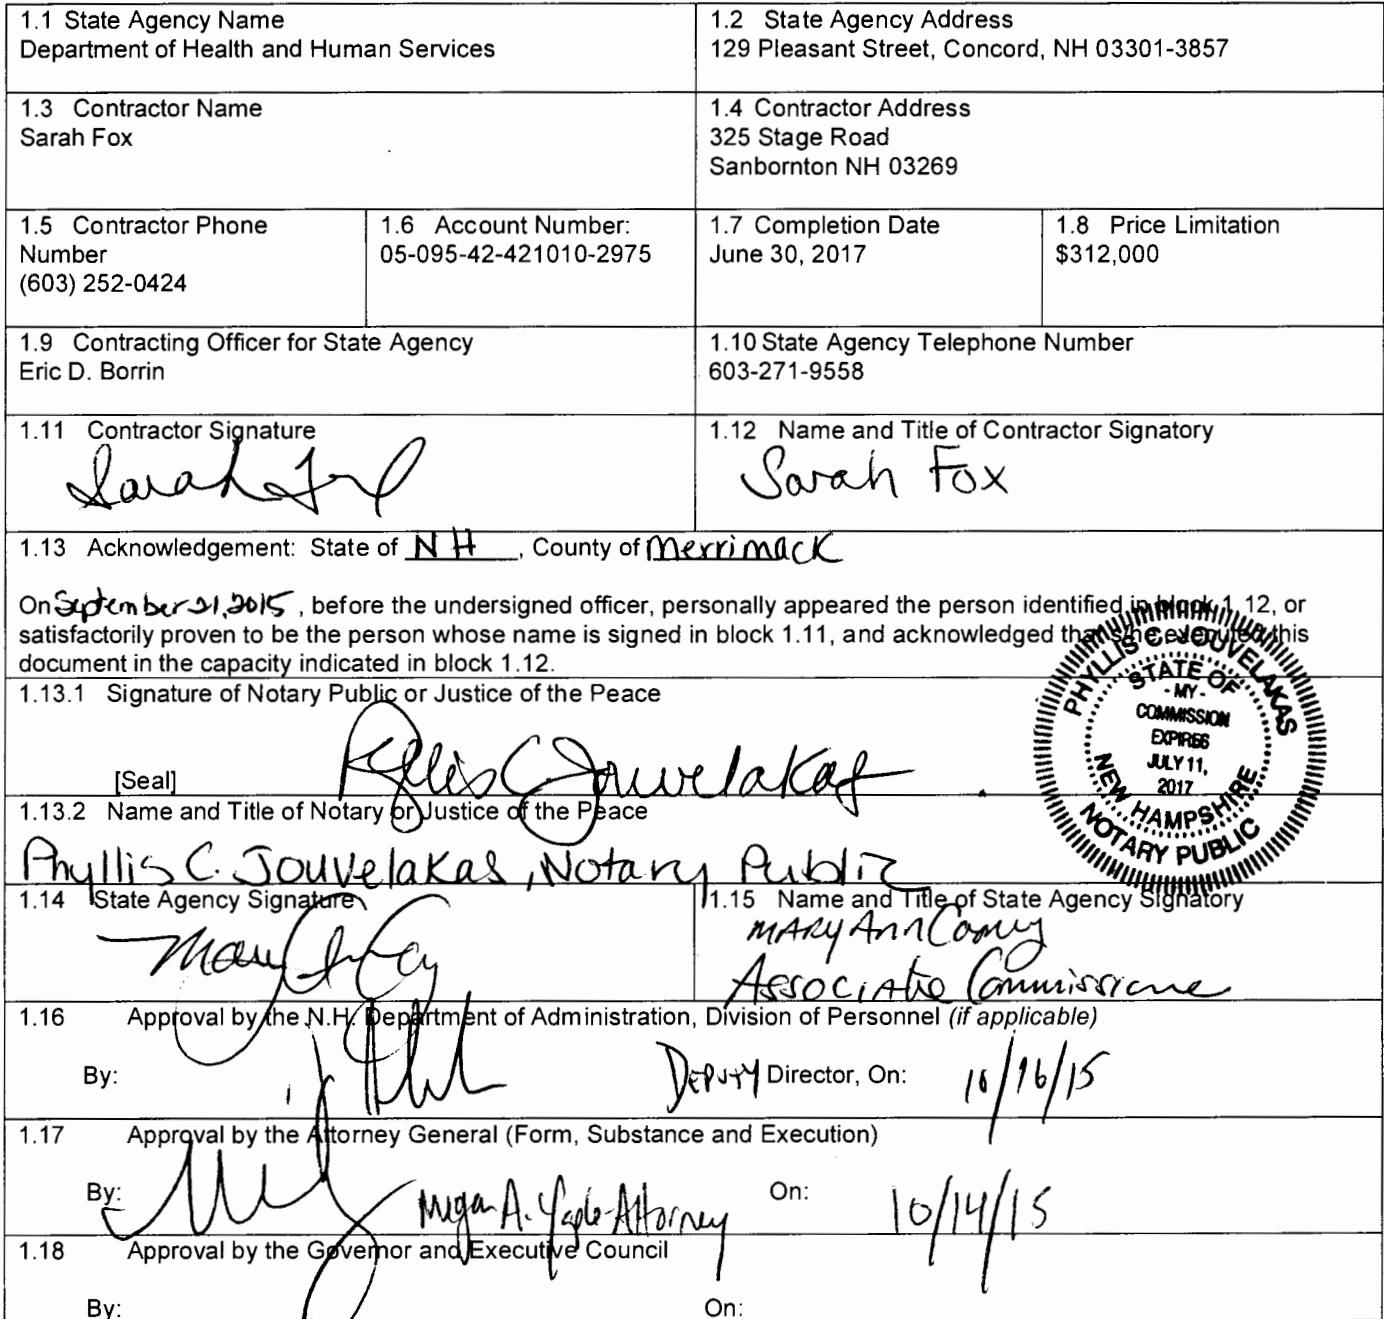 1.1 State Agency Name
Department of Health and Human Services
1.2 State Agency Address
129 Pleasant Street, Concord, NH 03301-3857
1.3 Contractor Name
Sarah Fox
1.4 Contractor Address
325 Stage Road
Sanbornton NH 03269
1.5 Contractor Phone
Number
(603) 252-0424
1.6 Account Number:
05-095-42-421010-2975
1.7 Completion Date
June 30, 2017
1.8 Price Limitation
$312,000
1.9 Contracting Officer for State Agency
Eric D. Borrin
1.10 State Agency Telephone Number
603-271-9558
1.11 Contractor Signature
Sarah Fox
1.12 Name and Title of Contractor Signatory
Sarah Fox
1.13 Acknowledgement: State of NH, County of Merrimack
On September 21, 2015, before the undersigned officer, personally appeared the person identified in block 1.12, or
satisfactorily proven to be the person whose name is signed in block 1.11, and acknowledged that s/he executed this
document in the capacity indicated in block 1.12.
1.13.1 Signature of Notary Public or Justice of the Peace
Phyllis C Jouvelakas
[Seal]
PHYLLIS C. JOUVELAKAS
STATE OF
- MY -
COMMISSION
EXPIRES
JULY 11,
2017
NEW HAMPSHIRE
NOTARY PUBLIC
1.13.2 Name and Title of Notary or Justice of the Peace
Phyllis C. Jouvelakas, Notary Public
1.14 State Agency Signature
1.15 Name and Title of State Agency Signatory
Mary Ann
Associate Commissioner
1.16 Approval by the N.H. Department of Administration, Division of Personnel (if applicable)
By: Deputy Director, On: 10/16/15
1.17 Approval by the Attorney General (Form, Substance and Execution)
By: Megan A. Yaple-Attorney On: 10/14/15
1.18 Approval by the Governor and Executive Council
By: On: